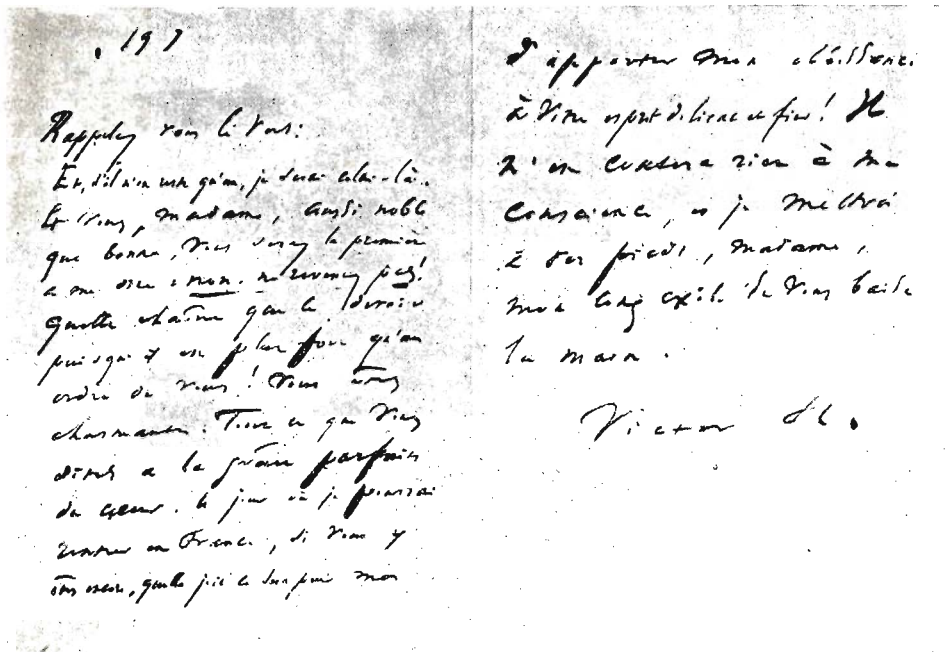 197
Rappelez vous le vers:
Et, s'il n'en reste qu'un, je serai celui-là.
Et vous, madame, aussi noble
que bonne, vous serez la première
a me dire : non. ne revenez pas!
quelle chaîne que le devoir
puisqu'il est plus fort qu'un
ordre de vous! Vous êtes
charmante. Tout ce que vous
dites a la grâce parfaite
du cœur. le jour où je pourrai
rentrer en France, si vous y
êtes encore, quelle joie ce sera pour moi
d'apporter mon obéissance
à votre esprit délicat et fier! Il
n'en coûtera rien à ma
conscience, et je mettrai
à vos pieds, madame,
mon long exil. Je vous baise
la main.
Victor H.